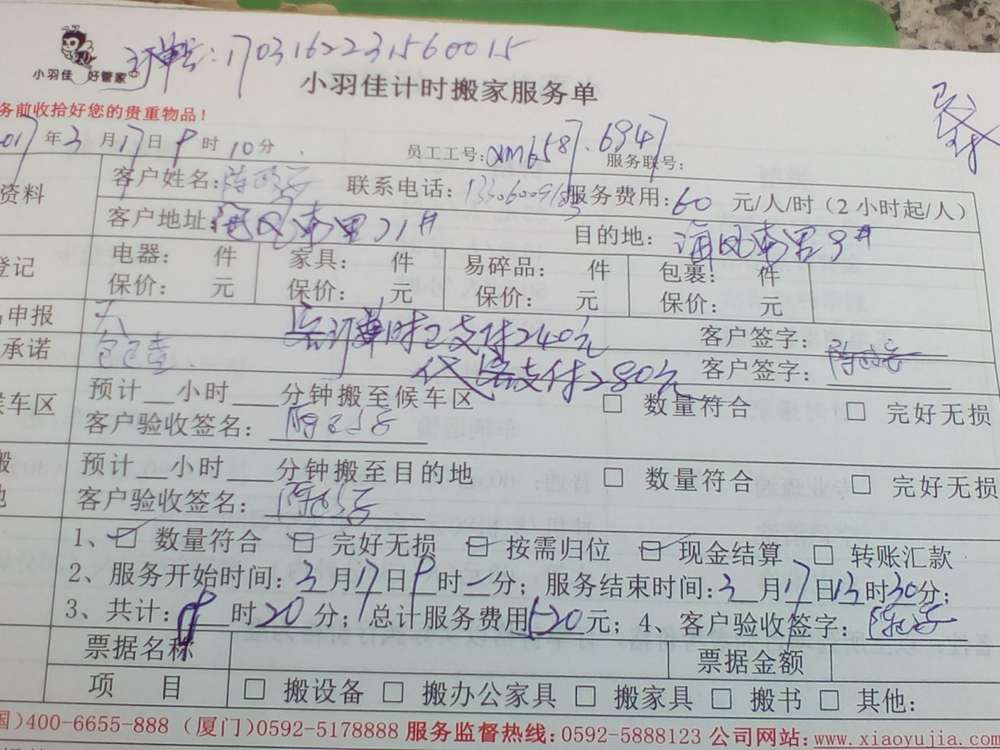 订单号：1703162231560015
小羽佳 好管家
小羽佳计时搬家服务单
务前收拾好您的贵重物品！
2017年3月17日9时10分
员工工号：xm6587.6947
服务联号：
资料 客户姓名： 联系电话： 服务费用：60 元/人/时（2小时起/人）
客户地址 海风南里21# 目的地：海风南里9#
登记 电器： 件 家具： 件 易碎品： 件 包裹： 件
保价： 元 保价： 元 保价： 元 保价： 元
申报 无 客订单时已支付240元 客户签字：
承诺 代客支付280元 客户签字：
候车区 预计 小时 分钟搬至候车区 □ 数量符合 □ 完好无损
客户验收签名：
搬 预计 小时 分钟搬至目的地 □ 数量符合 □ 完好无损
地 客户验收签名：
1、□ 数量符合 □ 完好无损 □ 按需归位 □ 现金结算 □ 转账汇款
2、服务开始时间：3月17日9时 分；服务结束时间：3月17日13时30分；
3、共计： 时20分；总计服务费用520元；4、客户验收签字：
票据名称 票据金额
项 目 □ 搬设备 □ 搬办公家具 □ 搬家具 □ 搬书 □ 其他：
国）400-6655-888（厦门）0592-5178888 服务监督热线：0592-5888123 公司网站：www.xiaoyujia.com